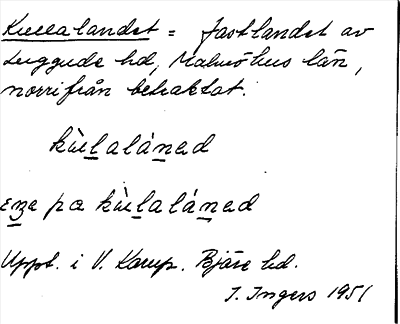 Kullalandet = fastlandet av
Luggude hd, Malmöhus län,
norrifrån betraktat.
kùlalánad
ena pa kùlalánad
Uppt. i V. Karup. Bjäre hd.
I. Ingers 1951